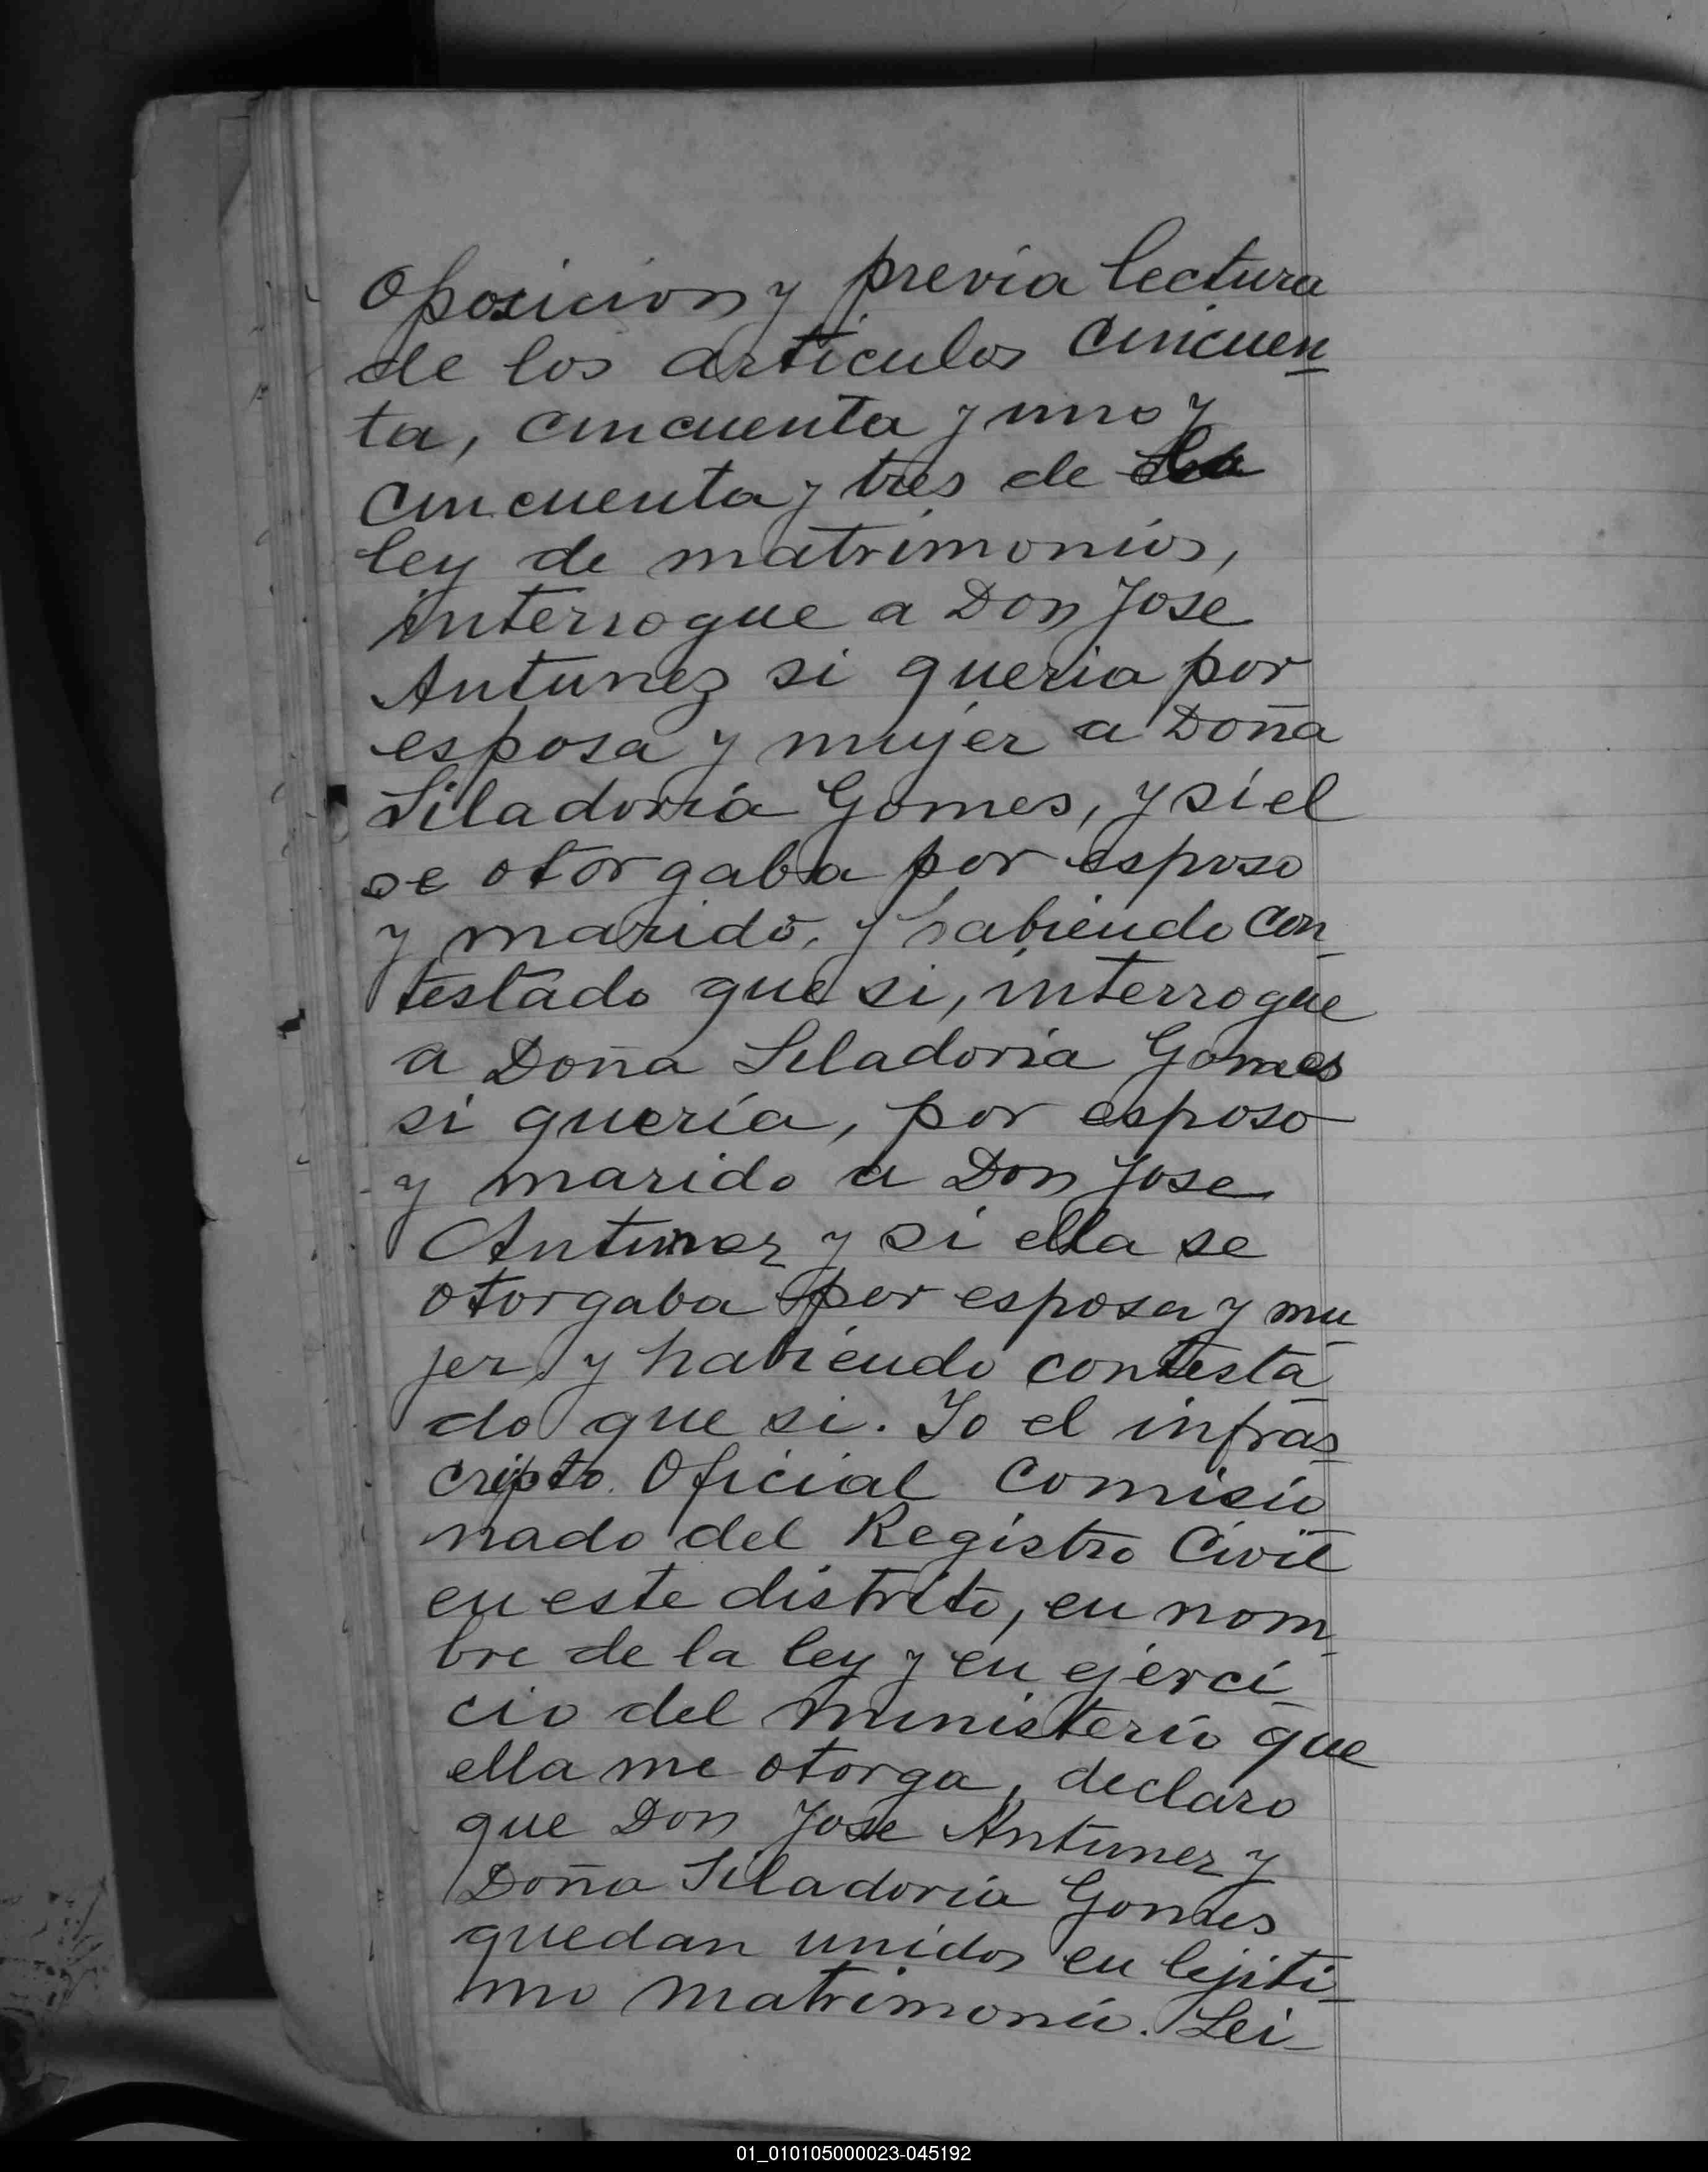 oposicion y previa lectura
de los articulos cincuen
ta, cincuenta y uno y
cincuenta y tres de la
ley de matrimonios,
interrogue a Don Jose
Antunez si queria por
esposa y mujer a Doña
Siladoria Gomes, y si el
se otorgaba por esposo
y marido, y habiendo con
testado que si, interrogue
a Doña Siladoria Gomes
si quería, por esposo
y marido a Don Jose
Antunez y si ella se
otorgaba por esposa y mu
jer, y habiendo contesta
do que si. Yo el infras
cripto Oficial Comisio
nado del Registro Civil
en este distrito, en nom
bre de la ley y en ejerci
cio del ministerio que
ella me otorga, declaro
que Don Jose Antunez y
Doña Siladoria Gomes
quedan unidos en lejiti
mo matrimonio. Lei
01_010105000023-045192